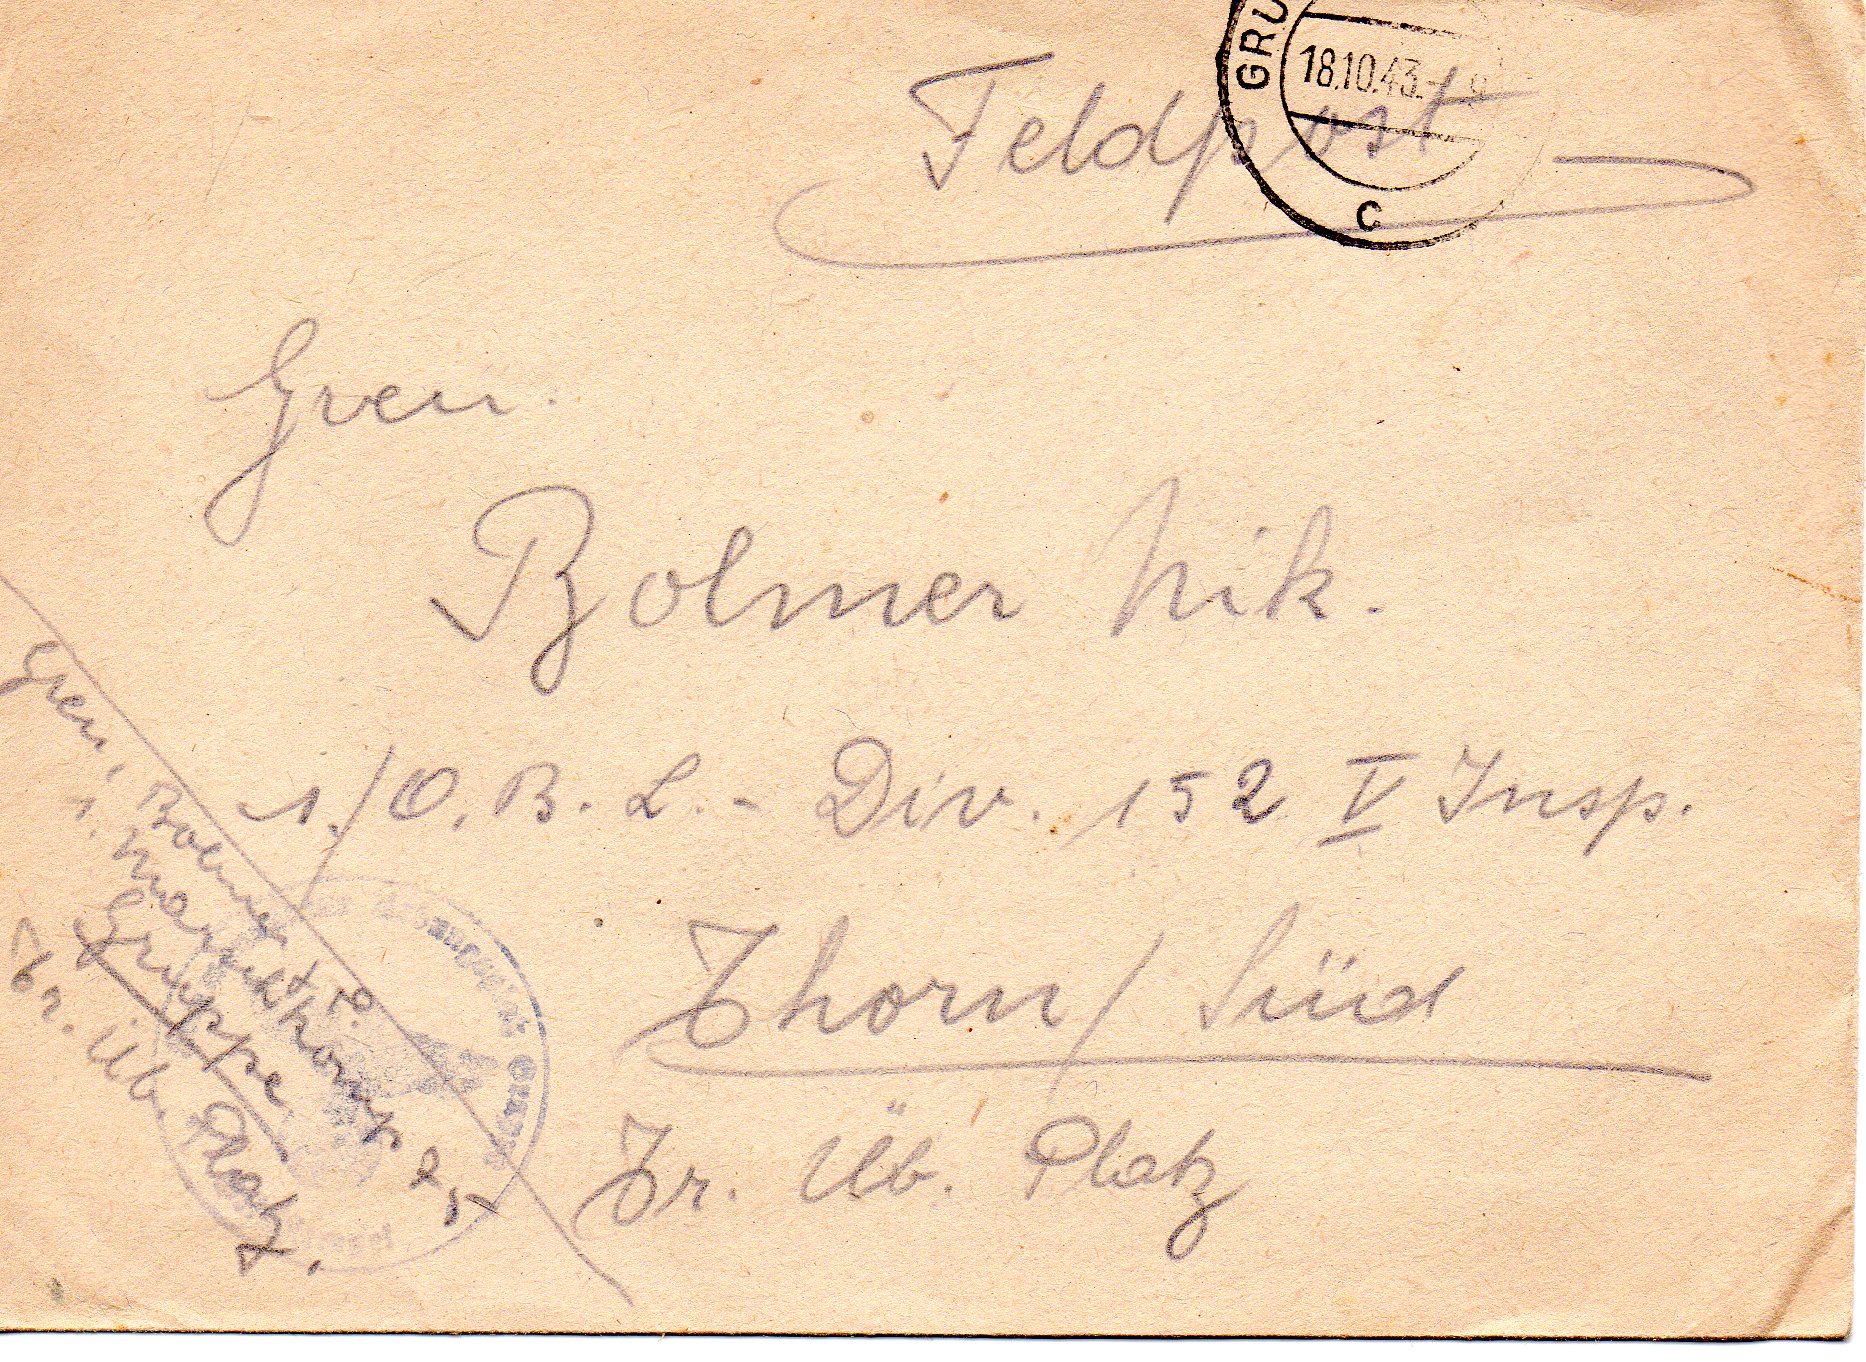 GRU
18.10.43.
c
Feldpost
Gren.
Bolmer Nik.
1./O.B.L.- Div. 152 V Insp.
Thorn / Süd
Tr. Üb. Platz
Gren. Bolmer
1.
Gruppe
Tr. Üb. Platz.